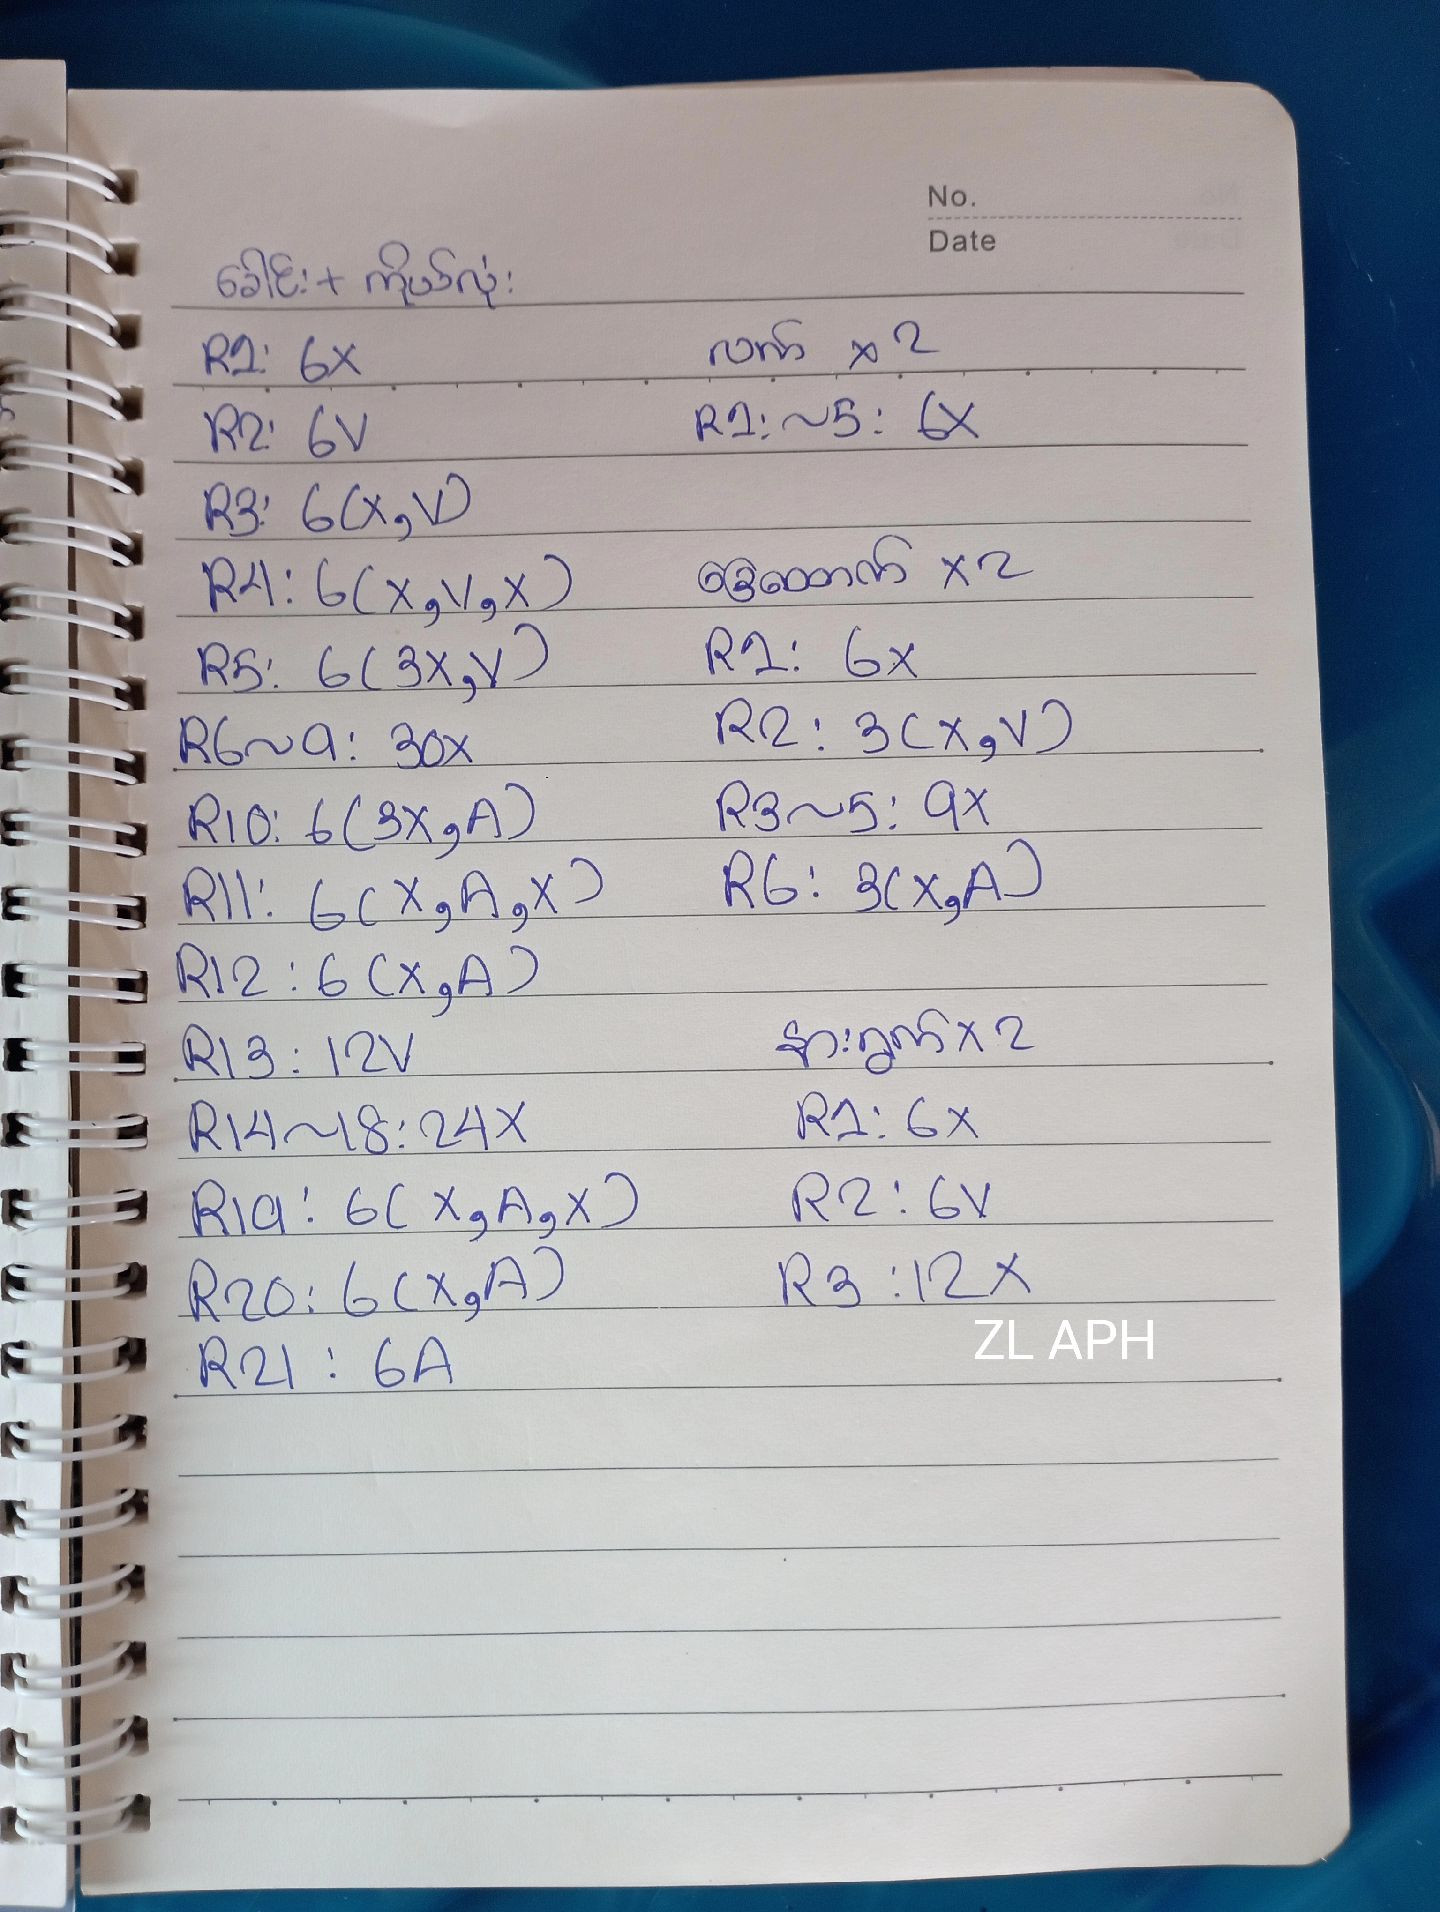 No.
Date
ခေါင်း + ကိုယ်လုံး
R1: 6x
R2: 6V
R3: 6(x,V)
R4: 6(x,V,x)
R5: 6(3x,V)
R6~9: 30x
R10: 6(3x,A)
R11: 6(x,A,x)
R12: 6(x,A)
R13: 12V
R14~18: 24x
R19: 6(x,A,x)
R20: 6(x,A)
R21: 6A
လက် x 2
R1:~5: 6x
ခြေထောက် x 2
R1: 6x
R2: 3(x,V)
R3~5: 9x
R6: 3(x,A)
နားရွက် x 2
R1: 6x
R2: 6V
R3: 12x
ZL APH